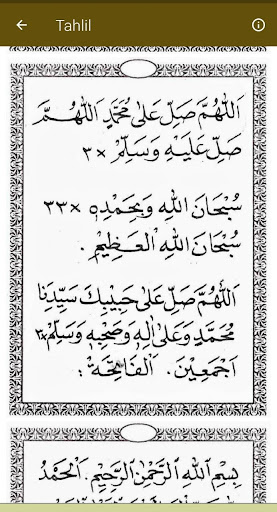 Tahlil
اَللّٰهُمَّ صَلِّ عَلٰى مُحَمَّدٍ اَللّٰهُمَّ
صَلِّ عَلَيْهِ وَسَلِّمْ ×٣
سُبْحَانَ اللهِ وَبِحَمْدِهِ ×٣٣
سُبْحَانَ اللهِ الْعَظِيْمِ .
اَللّٰهُمَّ صَلِّ عَلٰى حَبِيْبِكَ سَيِّدِنَا
مُحَمَّدٍ وَعَلٰى اٰلِهِ وَصَحْبِهِ وَسَلِّمْ ×٣
اَجْمَعِيْنَ . اَلْفَاتِحَةْ :
بِسْمِ اللهِ الرَّحْمٰنِ الرَّحِيْمِ . اَلْحَمْدُ